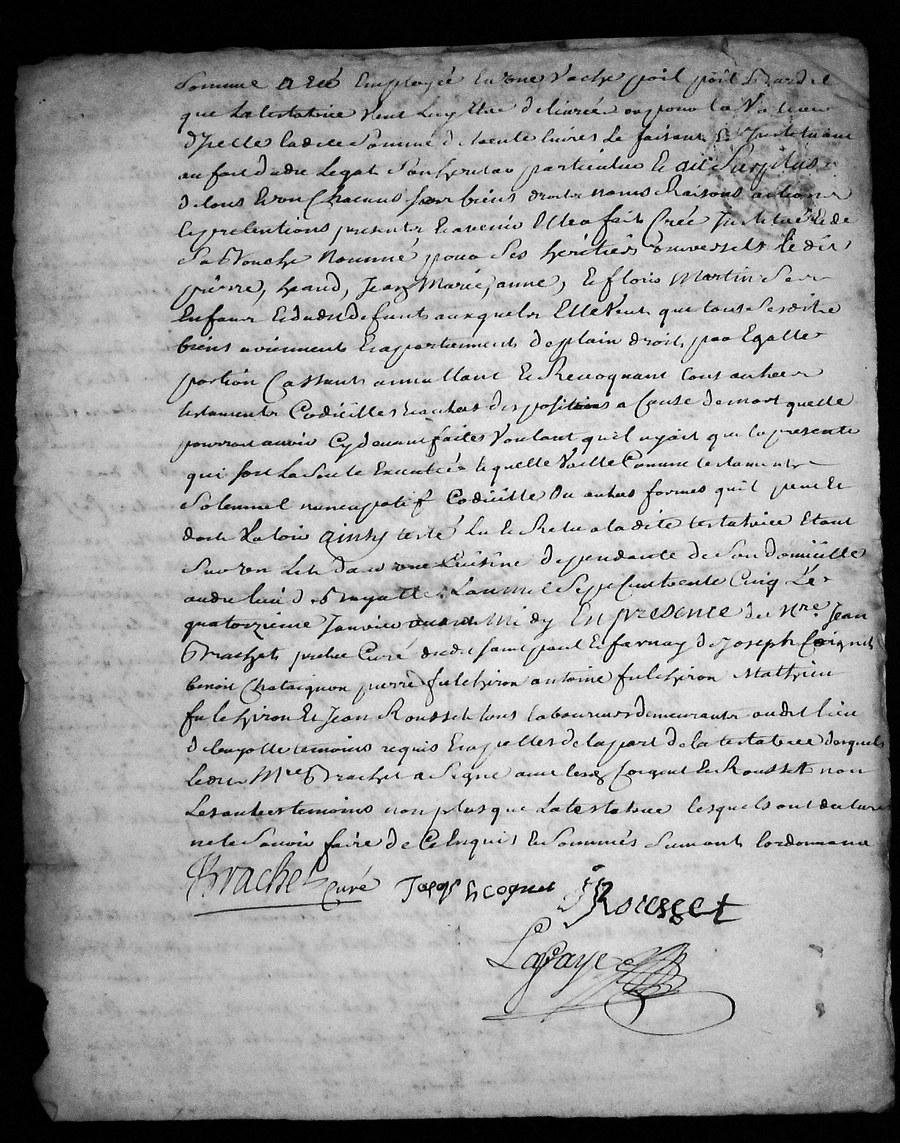 Somme a été Employée en une Vache poil
que la testatrice Veut luy Etre delivrée ou pour la Valeur
d'Icelle ladite Somme de trente livres le faisant &
au fait dudit Legat Son heritier particulier Et au Surplus
de tous Et un Chacuns Ses biens droits noms Raisons actions
Et pretentions presents Et avenir Elle a fait Créé Institué Et de
Sa Bouche Nommé pour Ses héritiers universels le dit
pierre, Jean Marie, anne, & Martin Ses
Enfans & dudit defunt auxquels Elle Veut que tous Sesdits
biens aviennent Et apartiennent de plain droit par Egalle
portion Cassant annullant Et Revoquant tous autres
testaments Codicilles Et autres dispositions a Cause de mort quelle
pourroit avoir Cy devant faites Voulant quil nyait que la presente
qui Sorte Executée laquelle Vaille Comme testament
Solemnel nuncupatif Codicille Ou autres formes quil peut Et
doit Valoir ainsy testé lu & Relu a ladite testatrice Etant
Sur Son Lit dans une Cuisine dependante de Son domicille
audit lieu de L'an mil Sept Cent trente Cinq Le
quatorzieme Janvier avant Midy En presence de Mre Jean
Brachet pretre Curé dudit Saint paul En farnay de Joseph
benoit Chataignon pierre fulchiron antoine fulchiron Mathieu
fulchiron Et Jean Rousset tous laboureurs demeurants audit lieu
de temoins requis Et apellés de la part de la testatrice desquels
ledit Mre Brachet a Signé avec lesd & Rousset non
Les autres temoins non plus que la testatrice lesquels ont declaré
ne le Savoir faire de Ce Enquis & Sommés Suivant lordonnance
Brachet Curé
JRousset
Lafaye